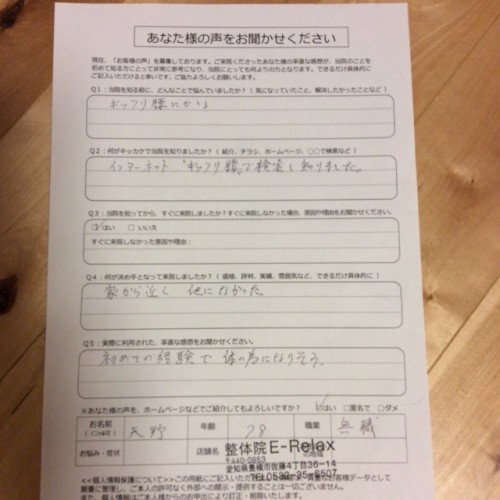 あなた様の声をお聞かせください
現在、「お客様の声」を募集しております。ご来院くださったあなた様の率直な感想が、当院のことを
初めて知る方にとって非常に参考になり、当院にとっても何よりの力となります。できるだけ具体的に
ご記入いただけると幸いです。ご協力よろしくお願いします。
Q1：当院を知る前に、どんなことで悩んでいましたか？（気になっていたこと、解決したかったことなど）
ギックリ腰にかかる
Q2：何がキッカケで当院を知りましたか？（紹介、チラシ、ホームページ、○○で検索など）
インターネット "ギックリ腰"で検索し知りました。
Q3：当院を知ってから、すぐに来院しましたか？すぐに来院しなかった場合、原因や理由をお聞かせください。
☑はい □いいえ
すぐに来院しなかった原因や理由：
Q4：何が決め手となって来院しましたか？（価格、評判、実績、雰囲気など、できるだけ具体的に）
家から近く 他になかった
Q5：実際に利用された、率直な感想をお聞かせください。
初めての経験で 体の為になりそう。
※あなた様の声を、ホームページなどでご紹介してもよろしいですか？ ☑はい □匿名で □ダメ
お名前 天野 年齢 78 職業 無職
お悩み・症状 店舗名 整体院 E-Relax
〒440-0853
愛知県豊橋市佐藤4丁目36-14
TEL 0532-35-6507
<<個人情報保護について>>この用紙にご記入いただ
厳重に管理し、ご本人の許可なく外部への開示・提供することは一切ございません。
また、個人情報はご本人様からのお申出により訂正・削除いたします。